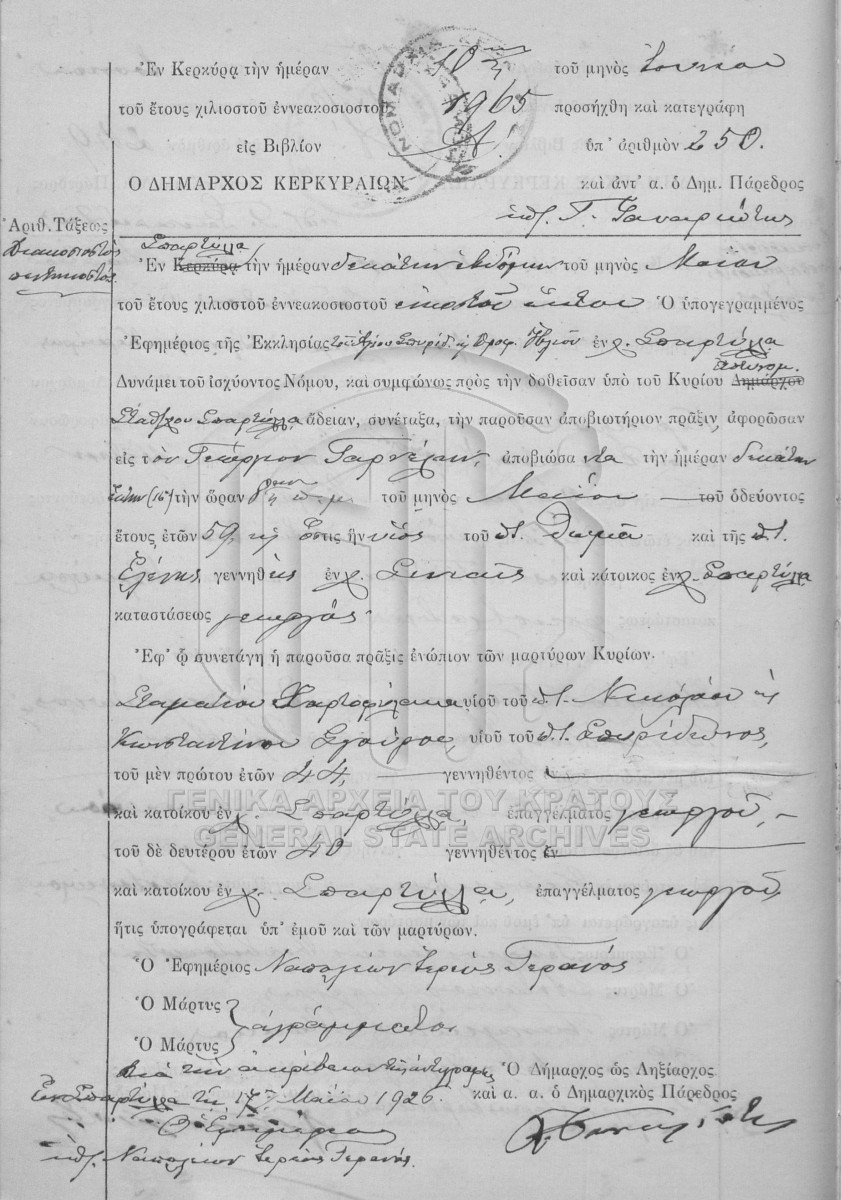 Ἐν Κερκύρᾳ τὴν ἡμέραν 10 τοῦ μηνὸς Ἰουνίου
τοῦ ἔτους χιλιοστοῦ ἐννεακοσιοστοῦ 1965 προσήχθη καὶ κατεγράφη
εἰς Βιβλίον Α'. ὑπ' ἀριθμὸν 250.
Ο ΔΗΜΑΡΧΟΣ ΚΕΡΚΥΡΑΙΩΝ καὶ ἀντ' α. ὁ Δημ. Πάρεδρος
ΝΟΜΑΡΧΙΑ
Ἀριθ. Τάξεως
Διακοσιοστὸς
πεντηκοστὸς
Σπαρτύλα
Ἐν Κερκύρᾳ τὴν ἡμέραν δεκάτην ἑβδόμην τοῦ μηνὸς Μαΐου
τοῦ ἔτους χιλιοστοῦ ἐννεακοσιοστοῦ εἰκοστοῦ ἕκτου Ὁ ὑπογεγραμμένος
Ἐφημέριος τῆς Ἐκκλησίας τοῦ Ἁγίου Σπυρίδ. κ Προφ. Ἠλιοῦ ἐν χ. Σπαρτύλλα
Ἀστυνομ.
Δυνάμει τοῦ ἰσχύοντος Νόμου, καὶ συμφώνως πρὸς τὴν δοθεῖσαν ὑπὸ τοῦ Κυρίου Δημάρχου
Σταθ/χου Σπαρτύλλα ἄδειαν, συνέταξα, τὴν παροῦσαν ἀποβιωτήριον πρᾶξιν, ἀφορῶσαν
εἰς τὸν Γεώργιον Γαρνέλην, ἀποβιώσαντα τὴν ἡμέραν δεκάτην
ἕκτην (16) τὴν ὥραν π.μ. τοῦ μηνὸς Μαΐου τοῦ ὁδεύοντος
ἔτους, ἐτῶν 59, ὅστις ἦν υἱὸς τοῦ π.τ. Θωμᾶ καὶ τῆς π.τ.
Ἑλένης, γεννηθεὶς ἐν χ. Σινιαῖς καὶ κάτοικος ἐν χ. Σπαρτύλλα
καταστάσεως γεωργός.
Ἐφ' ᾧ συνετάγη ἡ παροῦσα πρᾶξις ἐνώπιον τῶν μαρτύρων Κυρίων.
Σταματίου Χαρτοφύλακα υἱοῦ τοῦ π.τ. Νικολάου κ
Κωνσταντίνου Σγούρου, υἱοῦ τοῦ π.τ. Σπυρίδωνος,
τοῦ μὲν πρώτου ἐτῶν 44, γεννηθέντος ἐν
καὶ κατοίκου ἐν χ. Σπαρτύλλα, ἐπαγγέλματος γεωργοῦ,
τοῦ δὲ δευτέρου ἐτῶν 40 γεννηθέντος ἐν
καὶ κατοίκου ἐν χ. Σπαρτύλλα, ἐπαγγέλματος γεωργοῦ,
ἥτις ὑπογράφεται ὑπ' ἐμοῦ καὶ τῶν μαρτύρων.
Ὁ Ἐφημέριος Ναπολέων Ἱερεὺς Γερανός
Ὁ Μάρτυς
ἀγράμματοι
Ὁ Μάρτυς
Διὰ τὴν ἀκρίβειαν τῆς ἀντιγραφῆς
Ἐν Σπαρτύλλα τῇ 17 Μαΐου 1926
Ὁ Ἐφημέριος
Ναπολέων Ἱερεὺς Γερανός.
Ὁ Δήμαρχος ὡς Ληξίαρχος
καὶ α. α. ὁ Δημαρχικὸς Πάρεδρος
ΓΕΝΙΚΑ ΑΡΧΕΙΑ ΤΟΥ ΚΡΑΤΟΥΣ
GENERAL STATE ARCHIVES